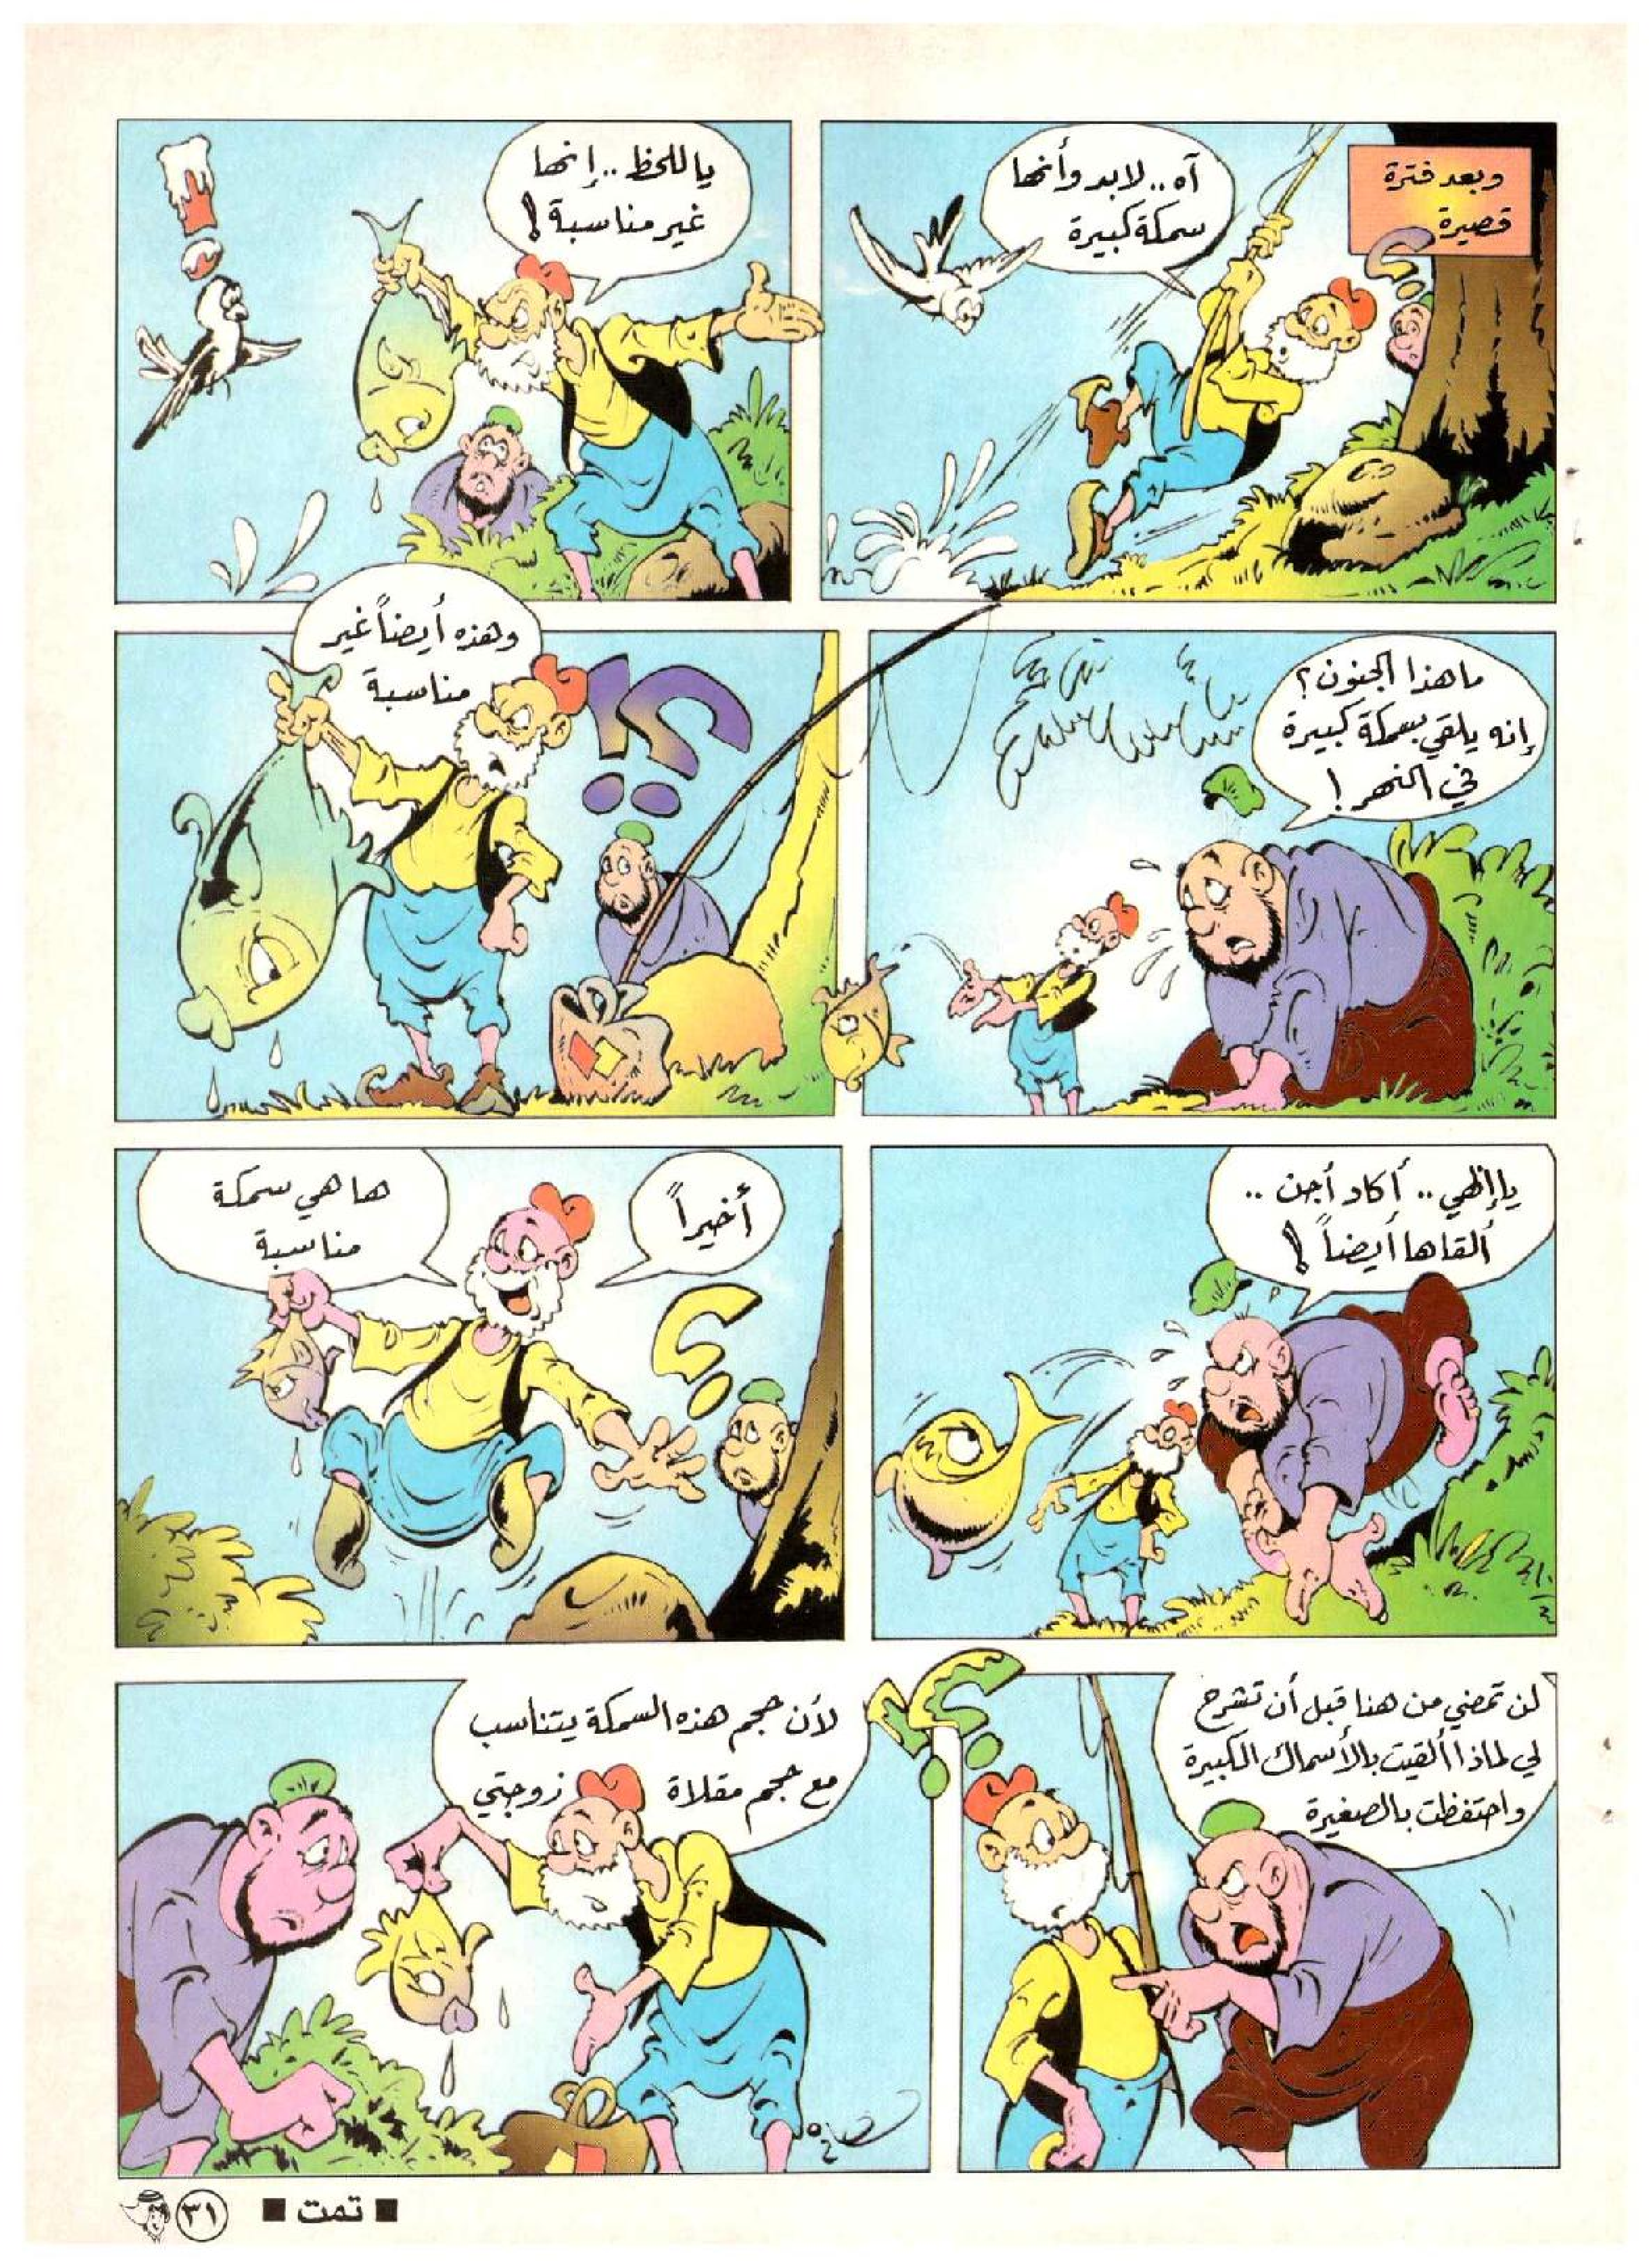 وبعد فترة
قصيرة
آه.. لابد وأنها
سمكة كبيرة
ياللحظ.. إنها
غير مناسبة!
ما هذا الجنون؟
إنه يلقي بسمكة كبيرة
في النهر!
وهذه أيضاً غير
مناسبة
؟!
يا إلهي.. أكاد أجن..
ألقاها أيضاً!
أخيراً
ها هي سمكة
مناسبة
؟
لن تمضي من هنا قبل أن تشرح
لي لماذا ألقيت بالأسماك الكبيرة
واحتفظت بالصغيرة
؟!
لأن حجم هذه السمكة يتناسب
مع حجم مقلاة زوجتي
■ تمت ■
٣١